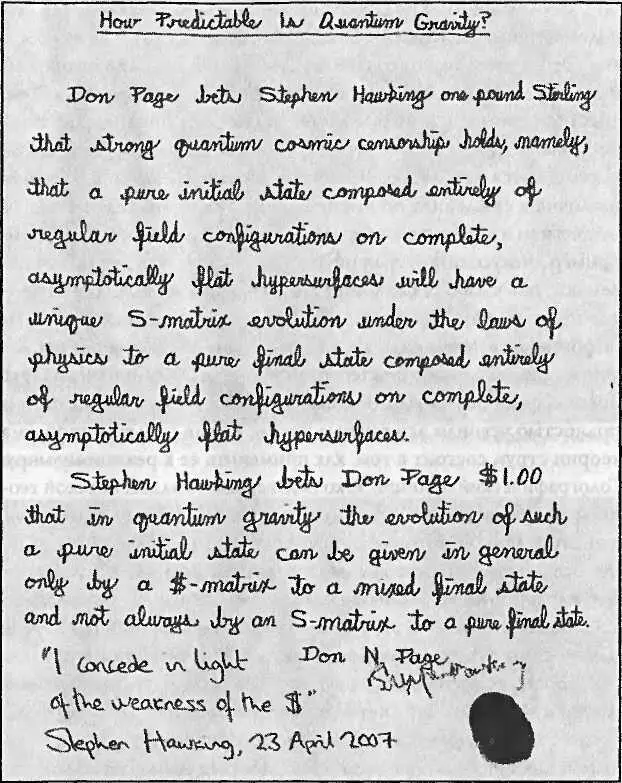 How Predictable Is Quantum Gravity?
Don Page bets Stephen Hawking one pound Sterling
that strong quantum cosmic censorship holds, namely,
that a pure initial state composed entirely of
regular field configurations on complete,
asymptotically flat hypersurfaces will have a
unique S-matrix evolution under the laws of
physics to a pure final state composed entirely
of regular field configurations on complete,
asymptotically flat hypersurfaces.
Stephen Hawking bets Don Page $1.00
that in quantum gravity the evolution of such
a pure initial state can be given in general
only by a $-matrix to a mixed final state
and not always by an S-matrix to a pure final state.
Don N Page
"I concede in light
of the weakness of the $"
Stephen Hawking, 23 April 2007